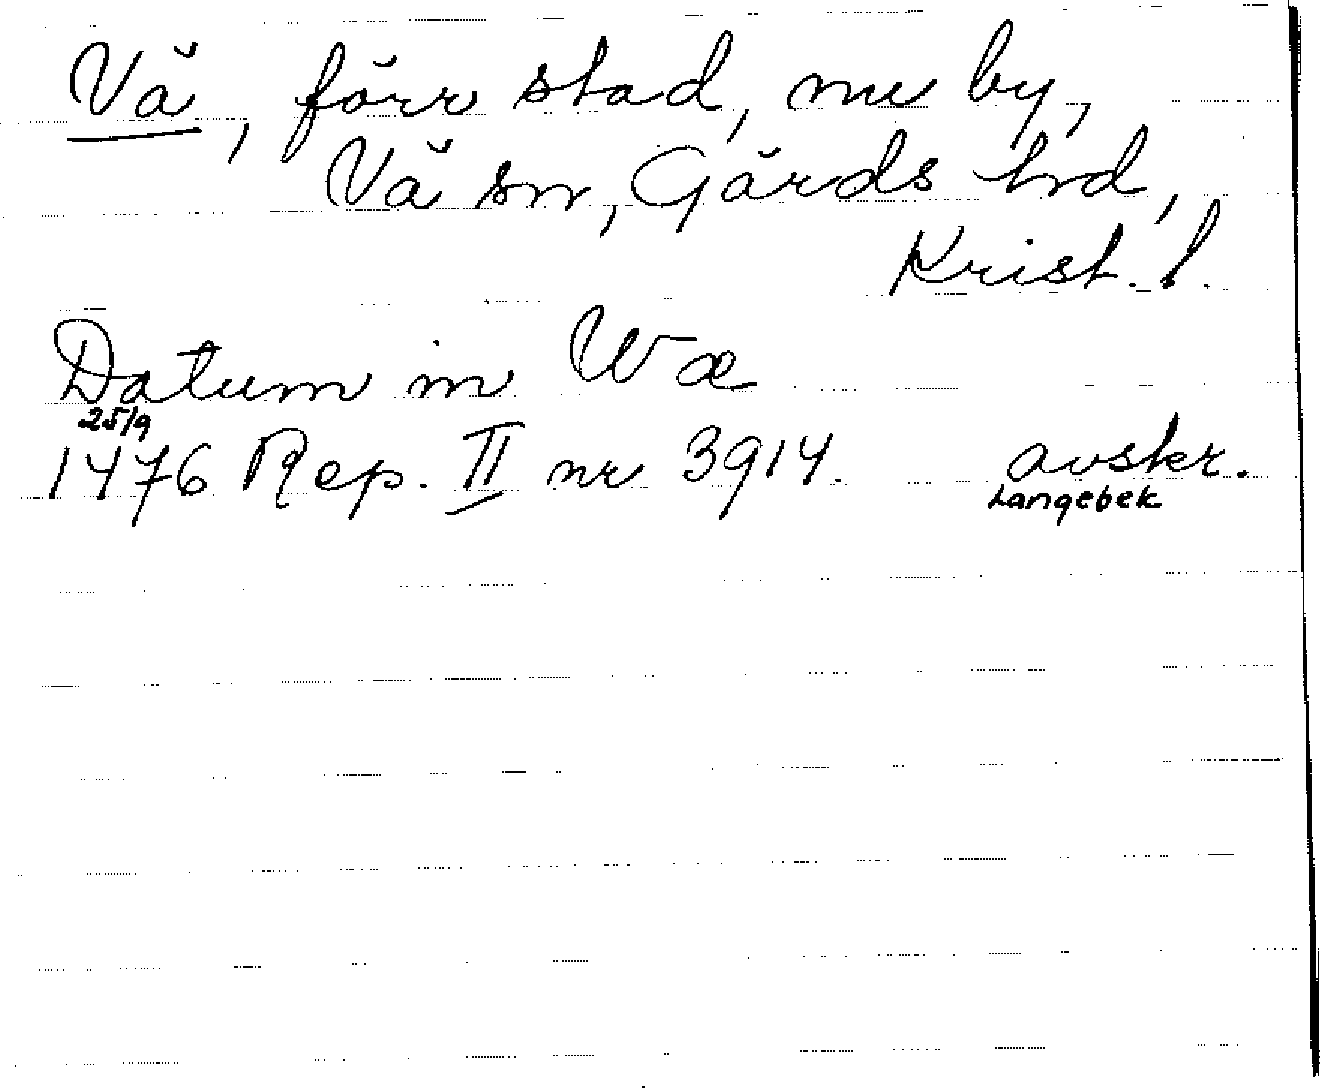 Vä, förr stad, nu by,
Vä sn, Gärds hrd,
Krist. l.
Datum in Wæ
25/9
1476 Rep. II nr 3914. avskr.
Langebek